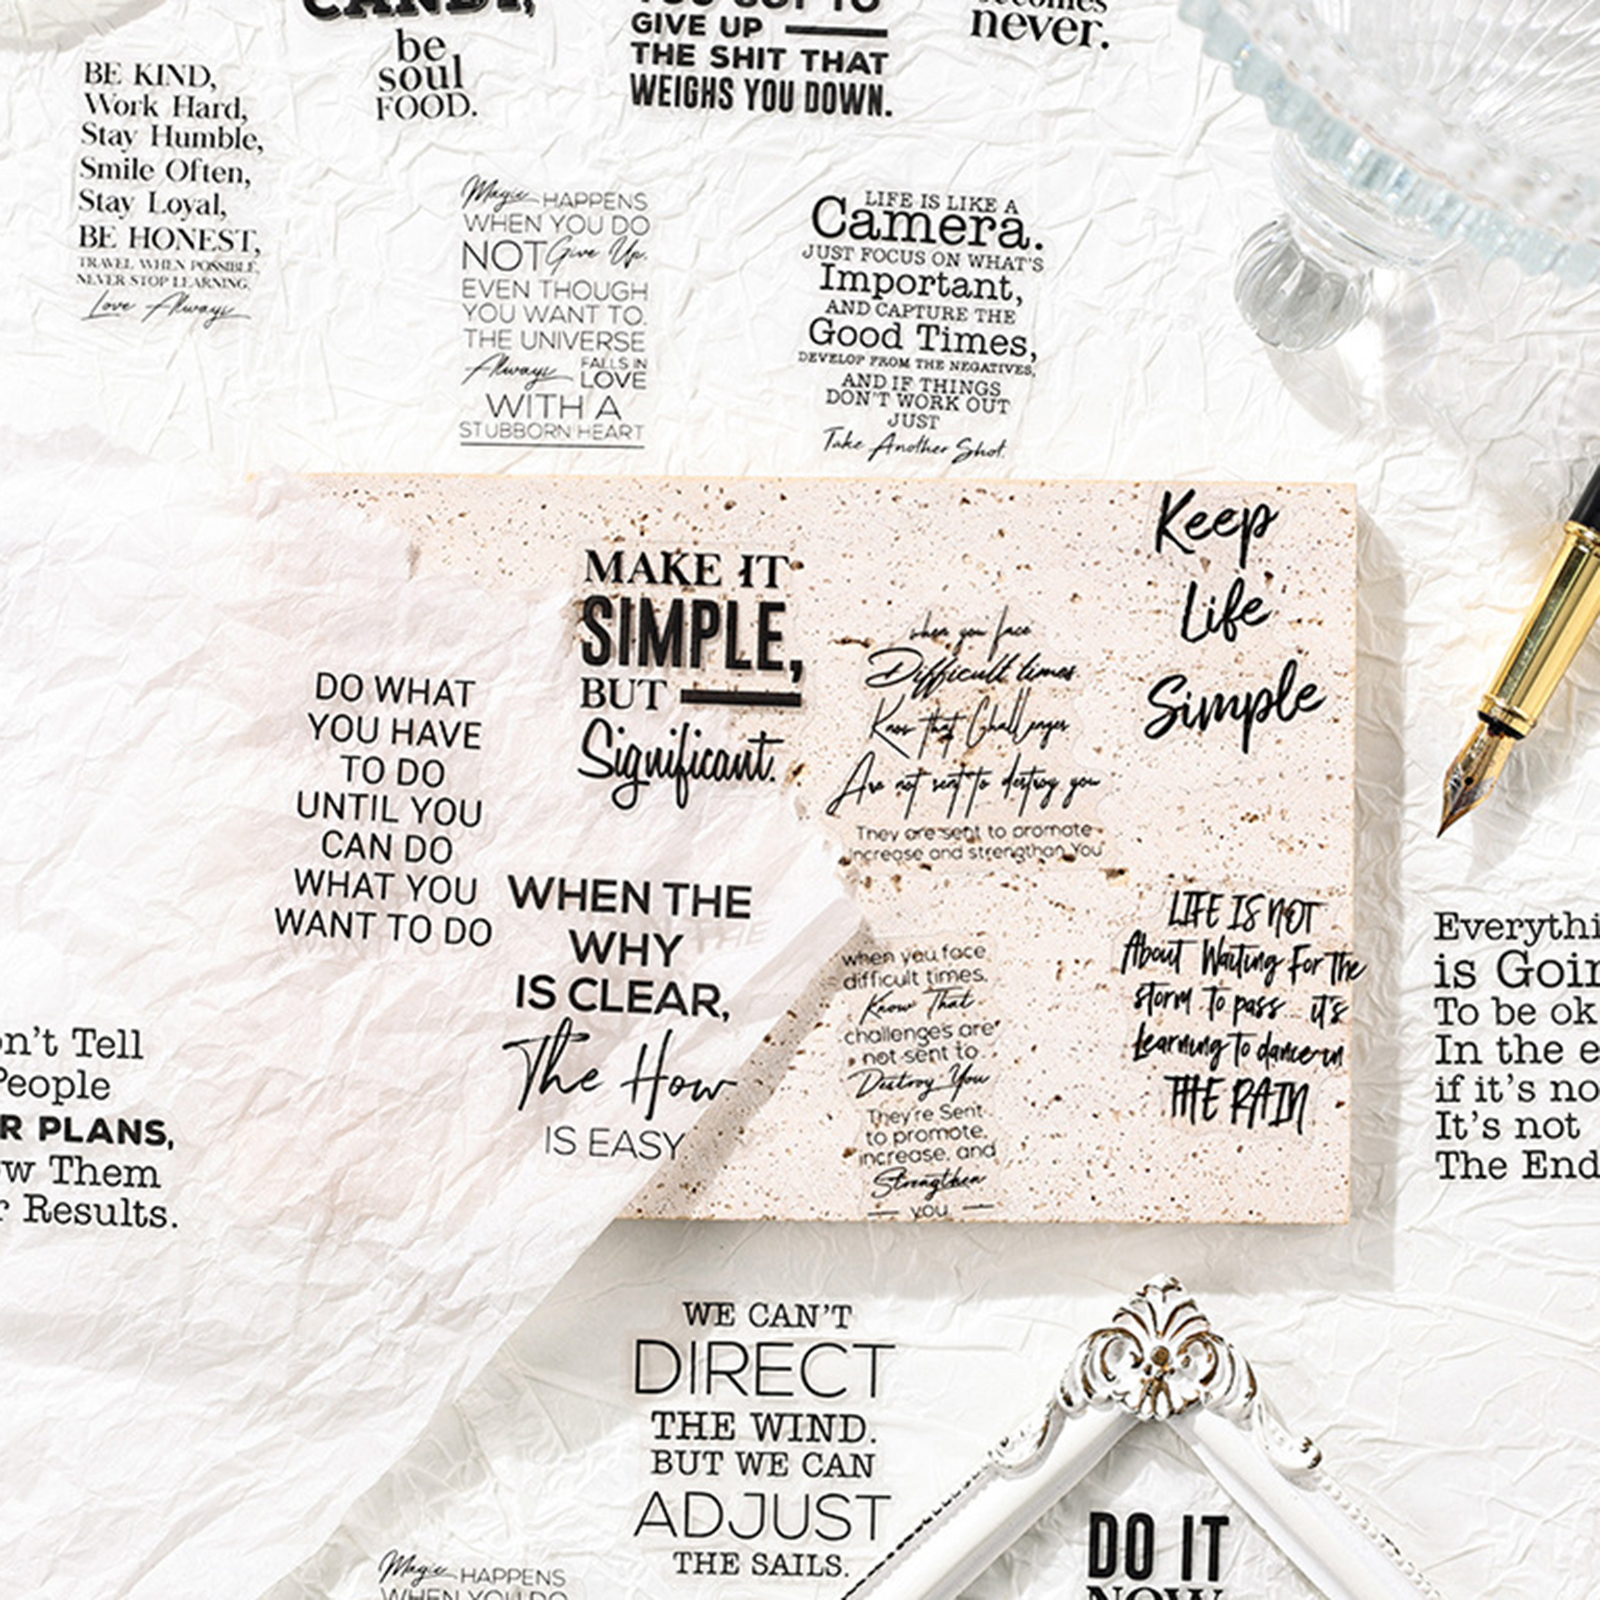 CANDY,
be
soul
FOOD.
YOU GOT TO
GIVE UP
THE SHIT THAT
WEIGHS YOU DOWN.
becomes
never.
BE KIND,
Work Hard,
Stay Humble,
Smile Often,
Stay Loyal,
BE HONEST,
TRAVEL WHEN POSSIBLE,
NEVER STOP LEARNING,
Love Always
Magic HAPPENS
WHEN YOU DO
NOT Give Up.
EVEN THOUGH
YOU WANT TO.
THE UNIVERSE
Always FALLS IN
LOVE
WITH A
STUBBORN HEART
LIFE IS LIKE A
Camera.
JUST FOCUS ON WHAT'S
Important,
AND CAPTURE THE
Good Times,
DEVELOP FROM THE NEGATIVES,
AND IF THINGS
DON'T WORK OUT
JUST
Take Another Shot.
MAKE IT
SIMPLE,
BUT
Significant.
Keep
Life
Simple
when you face
Difficult times
Know that Challenges
Are not sent to destroy you
They are sent to promote
increase and strengthan You
DO WHAT
YOU HAVE
TO DO
UNTIL YOU
CAN DO
WHAT YOU
WANT TO DO
WHEN THE
WHY
IS CLEAR,
The How
IS EASY
when you face
difficult times,
Know That
challenges are
not sent to
Destroy You
They're Sent
to promote,
increase, and
Strengthen
you
LIFE IS NOT
About Waiting For the
storm to pass... it's
Learning to dance in
THE RAIN
Everythi
is Goin
To be ok
In the e
if it's no
It's not
The End
on't Tell
People
R PLANS,
ow Them
r Results.
WE CAN'T
DIRECT
THE WIND.
BUT WE CAN
ADJUST
THE SAILS.
Magic HAPPENS
WHEN YOU DO
DO IT
NOW